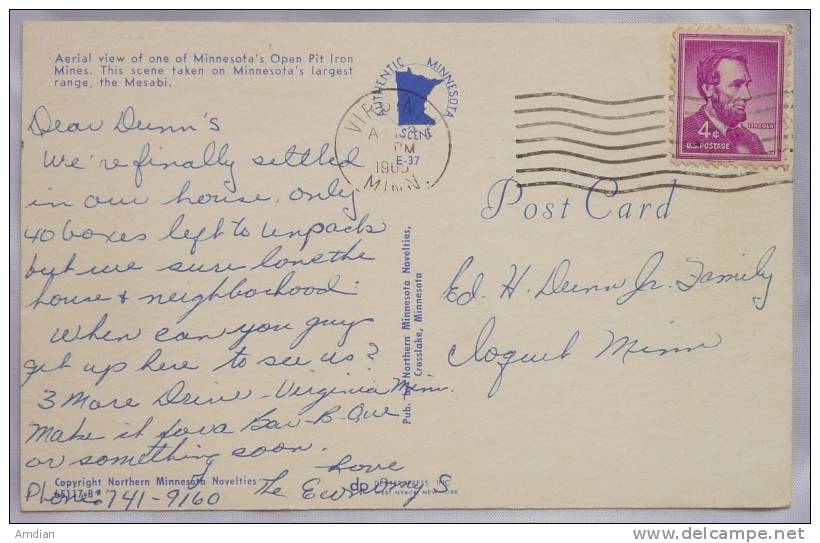 Aerial view of one of Minnesota's Open Pit Iron
Mines. This scene taken on Minnesota's largest
range, the Mesabi.
Dear Dunn's
We're finally settled
in our house, only
40 boxes left to unpack
but we sure love the
house & neighborhood.
When can you guys
get up here to see us?
3 More Drive - Virginia Minn.
Make it for a Bar-B-Que
or something soon.
Love
The
Phone 741-9160
Copyright Northern Minnesota Novelties
65117-B
AUTHENTIC MINNESOTA
SCENE
E-37
PM
MINN.
4¢
LINCOLN
U.S. POSTAGE
Post Card
Ed. H. Dunn Jr. Family
Cloquet Minn
Pub. by Northern Minnesota Novelties,
Crosslake, Minnesota
dp DEXTER PRESS, INC.
WEST NYACK, NEW YORK
© Amdian
delcampe.net